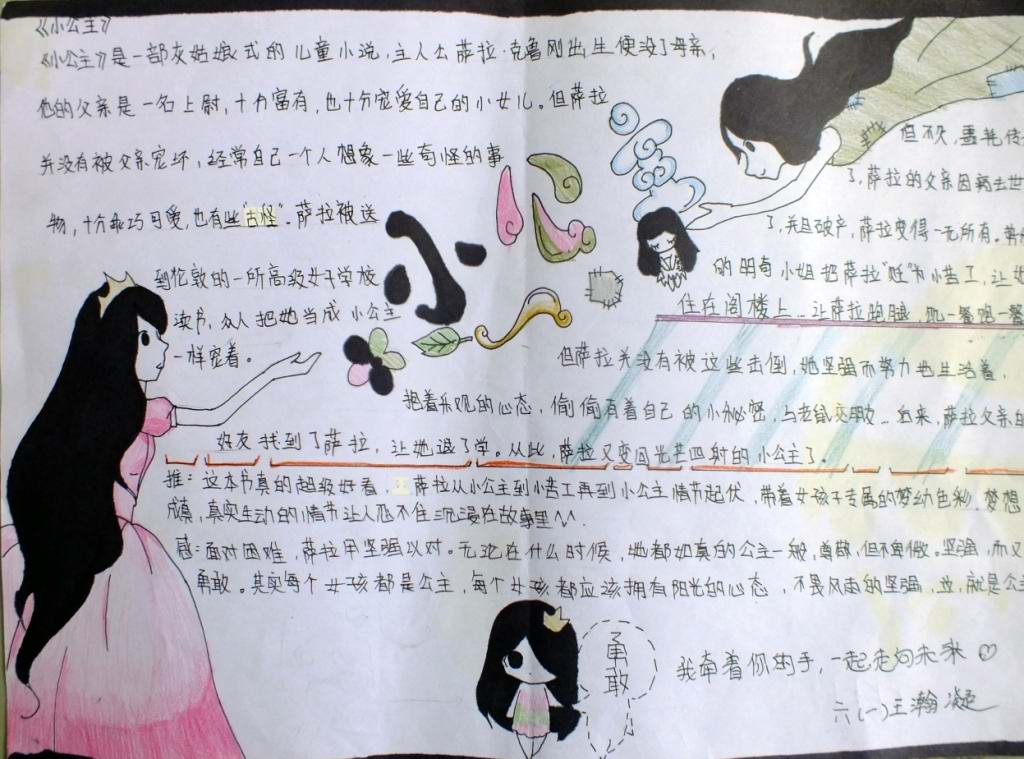 《小公主》
《小公主》是一部灰姑娘式的儿童小说,主人公萨拉·克鲁刚出生便没了母亲,
他的父亲是一名上尉,十分富有,也十分宠爱自己的小女儿。但萨拉
并没有被父亲宠坏,经常自己一个人想象一些奇怪的事
物,十分乖巧可爱,也有些"古怪"。萨拉被送
到伦敦的一所高级女子学校
读书,众人把她当成小公主
一样宠着。
但不久,噩耗传
了,萨拉的父亲因病去世
了,并且破产,萨拉变得一无所有。势
的明奇小姐把萨拉"贬"为小苦工,让她
住在阁楼上…让萨拉
但萨拉并没有被这些击倒,她坚强而努力地生活着,
抱着乐观的心态,偷偷有着自己的小秘密,与老鼠交朋友…后来,萨拉父亲的
好友找到了萨拉,让她退了学。从此,萨拉又变回光芒四射的小公主了。
推:这本书真的超级好看,萨拉从小公主到小苦工再到小公主情节起伏,带着女孩子专属的梦幻色彩,梦想
成真,真实生动的情节让人忍不住沉浸在故事里^^.
感:面对困难,萨拉用坚强以对。无论在什么时候,她都如真的公主一般,尊敬,但不卑微。坚强,而又
勇敢。其实每个女孩都是公主,每个女孩都应该拥有阳光的心态,不畏风雨的坚强,也,就是公主
小公主
勇敢
我牵着你的手,一起走向未来♡
六(一)王瀚凝